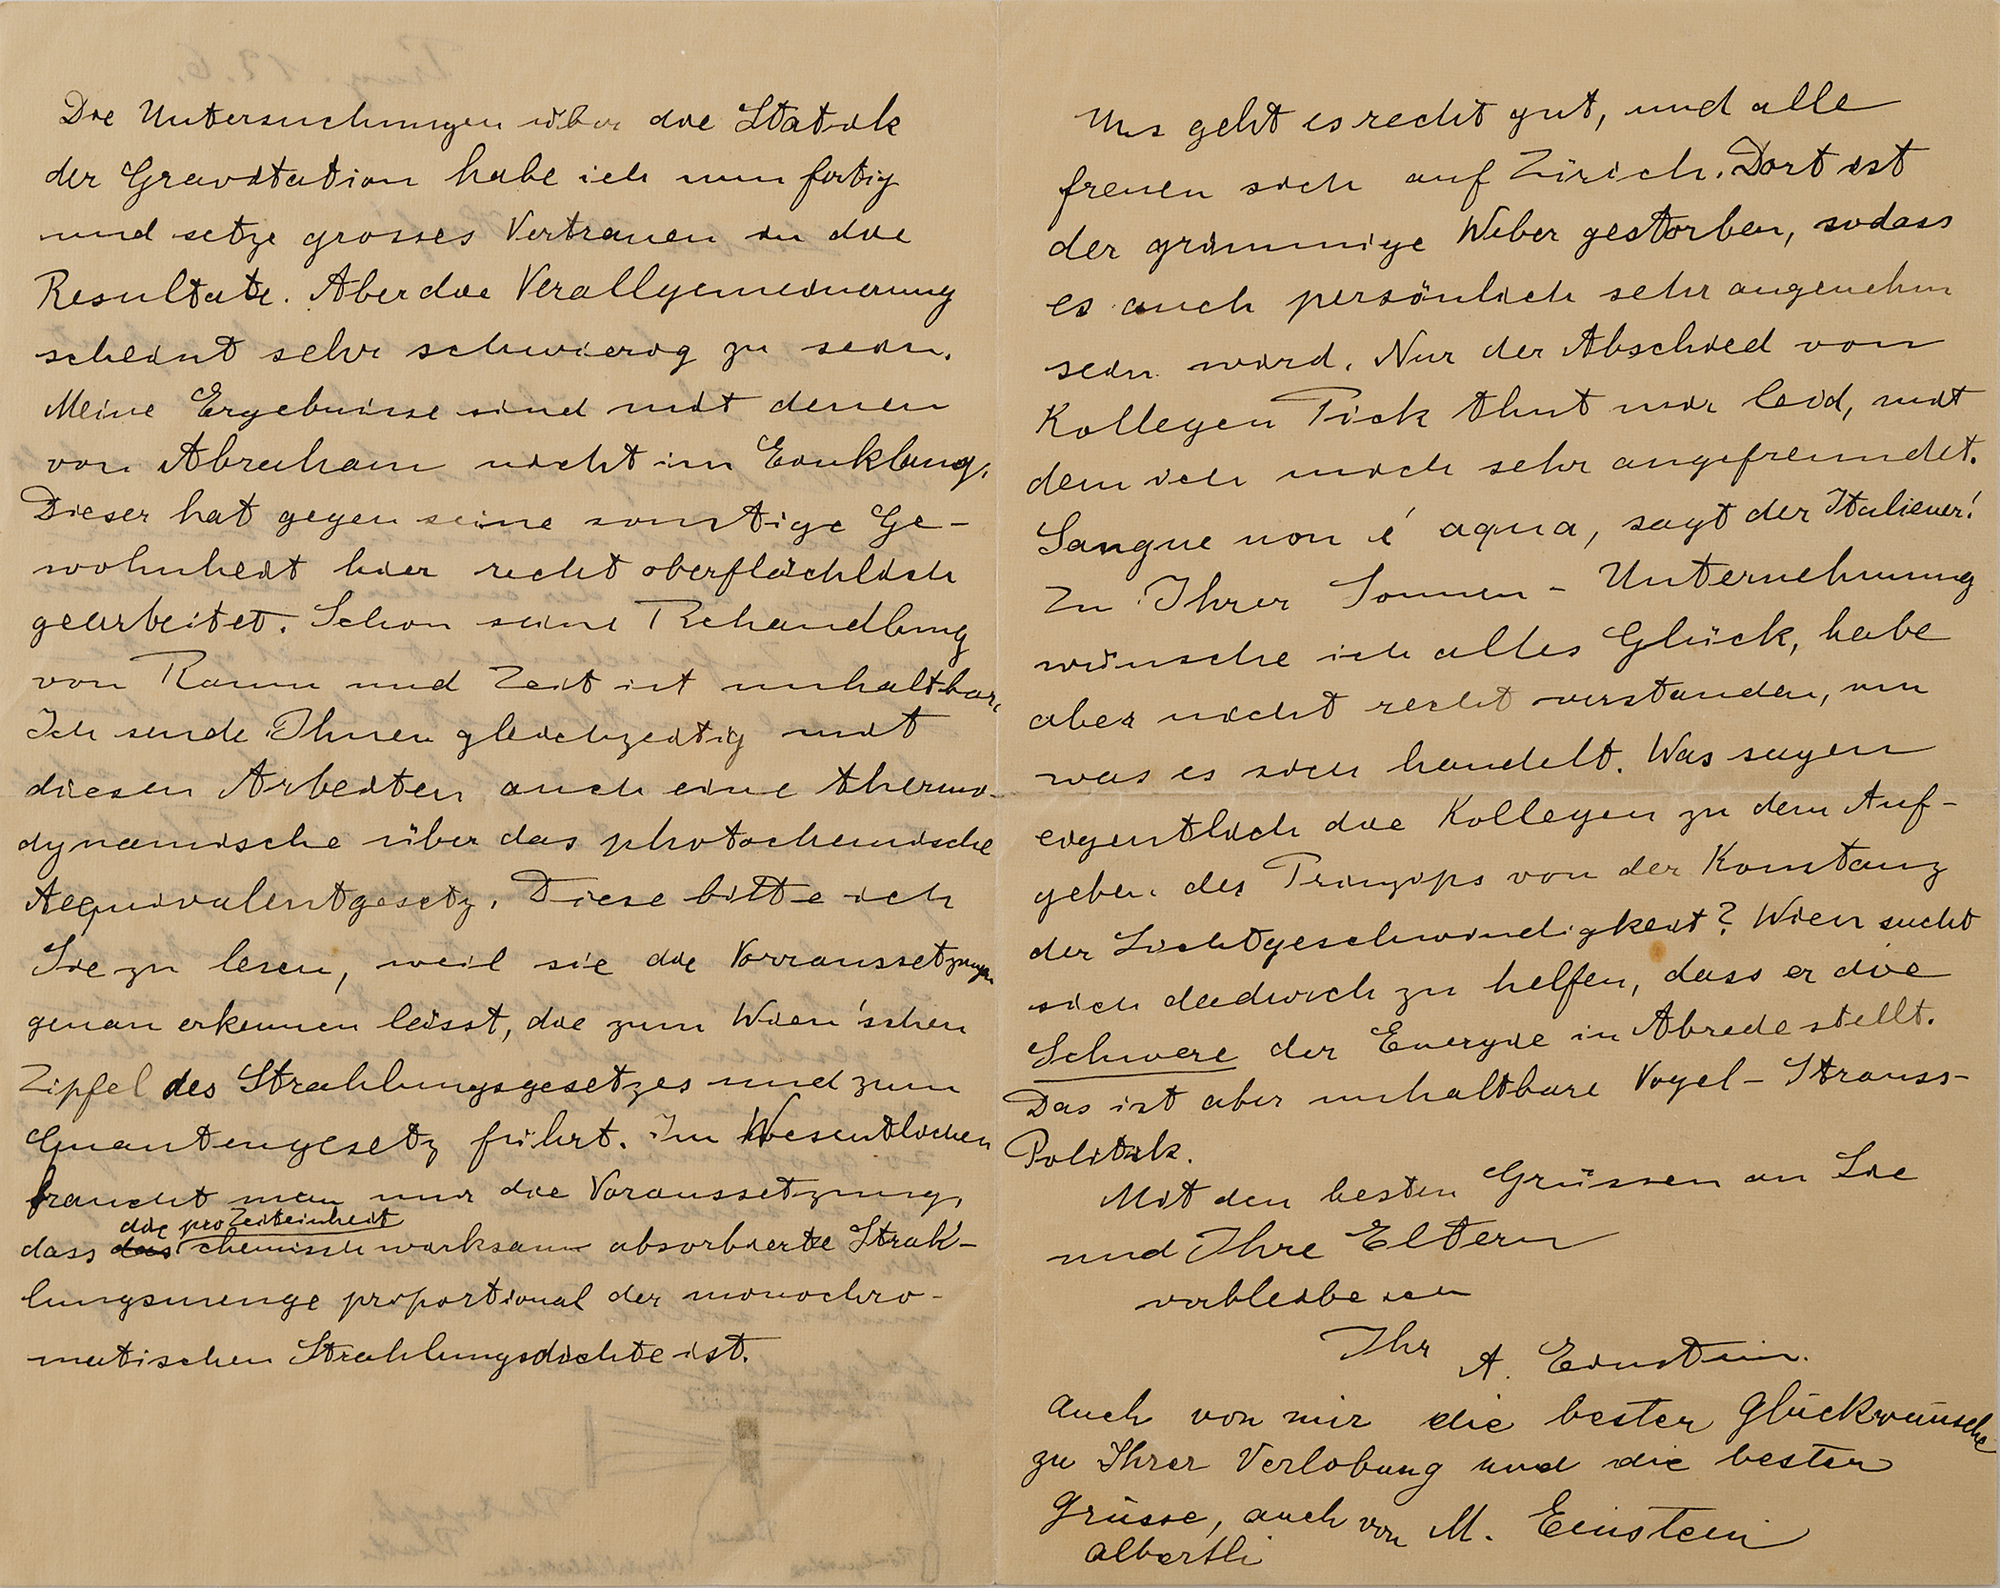 Die Untersuchungen über die Statik
der Gravitation habe ich nun fertig
und setze grosses Vertrauen in die
Resultate. Aber die Verallgemeinerung
scheint sehr schwierig zu sein.
Meine Ergebnisse sind mit denen
von Abraham nicht im Einklang.
Dieser hat gegen seine sonstige Ge-
wohnheit hier recht oberflächlich
gearbeitet. Schon seine Behandlung
von Raum und Zeit ist unhaltbar.
Ich sende Ihnen gleichzeitig mit
diesen Arbeiten auch eine thermo-
dynamische über das photochemische
Aequivalentgesetz. Diese bitte ich
Sie zu lesen, weil sie die Vorraussetzungen
genau erkennen lässt, die zum Wien'schen
Zipfel des Strahlungsgesetzes und zum
Quantengesetz führt. Im Wesentlichen
braucht man nur die Voraussetzung,
die pro Zeiteinheit
dass das chemisch wirksam absorbierte Strah-
lungsmenge proportional der monochro-
matischen Strahlungsdichte ist.
Uns geht es recht gut, und alle
freuen sich auf Zürich. Dort ist
der grimmige Weber gestorben, sodass
es auch persönlich sehr angenehm
sein wird. Nur der Abschied von
Kollegen Pick thut mir leid, mit
dem ich mich sehr angefreundet.
Sangue non é aqua, sagt der Italiener!
Zu Ihrer Sonnen-Unternehmung
wünsche ich alles Glück, habe
aber nicht recht verstanden, um
was es sich handelt. Was sagen
eigentlich die Kollegen zu dem Auf-
geben des Prinzips von der Konstanz
der Lichtgeschwindigkeit? Wien sucht
sich dadurch zu helfen, dass er die
Schwere der Energie in Abrede stellt.
Das ist aber unhaltbare Vogel-Strauss-
Politik.
Mit den besten Grüssen an Sie
und Ihre Eltern
verbleibe ich
Ihr A. Einstein.
Auch von mir die besten Glückwünsche
zu Ihrer Verlobung und die besten
Grüsse, auch von M. Einstein
Albertli